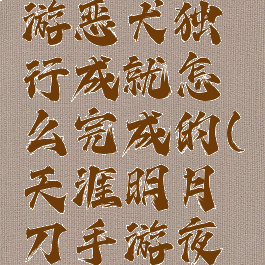 游恶犬独
行成就怎
么完成的(
天涯明月
刀手游夜